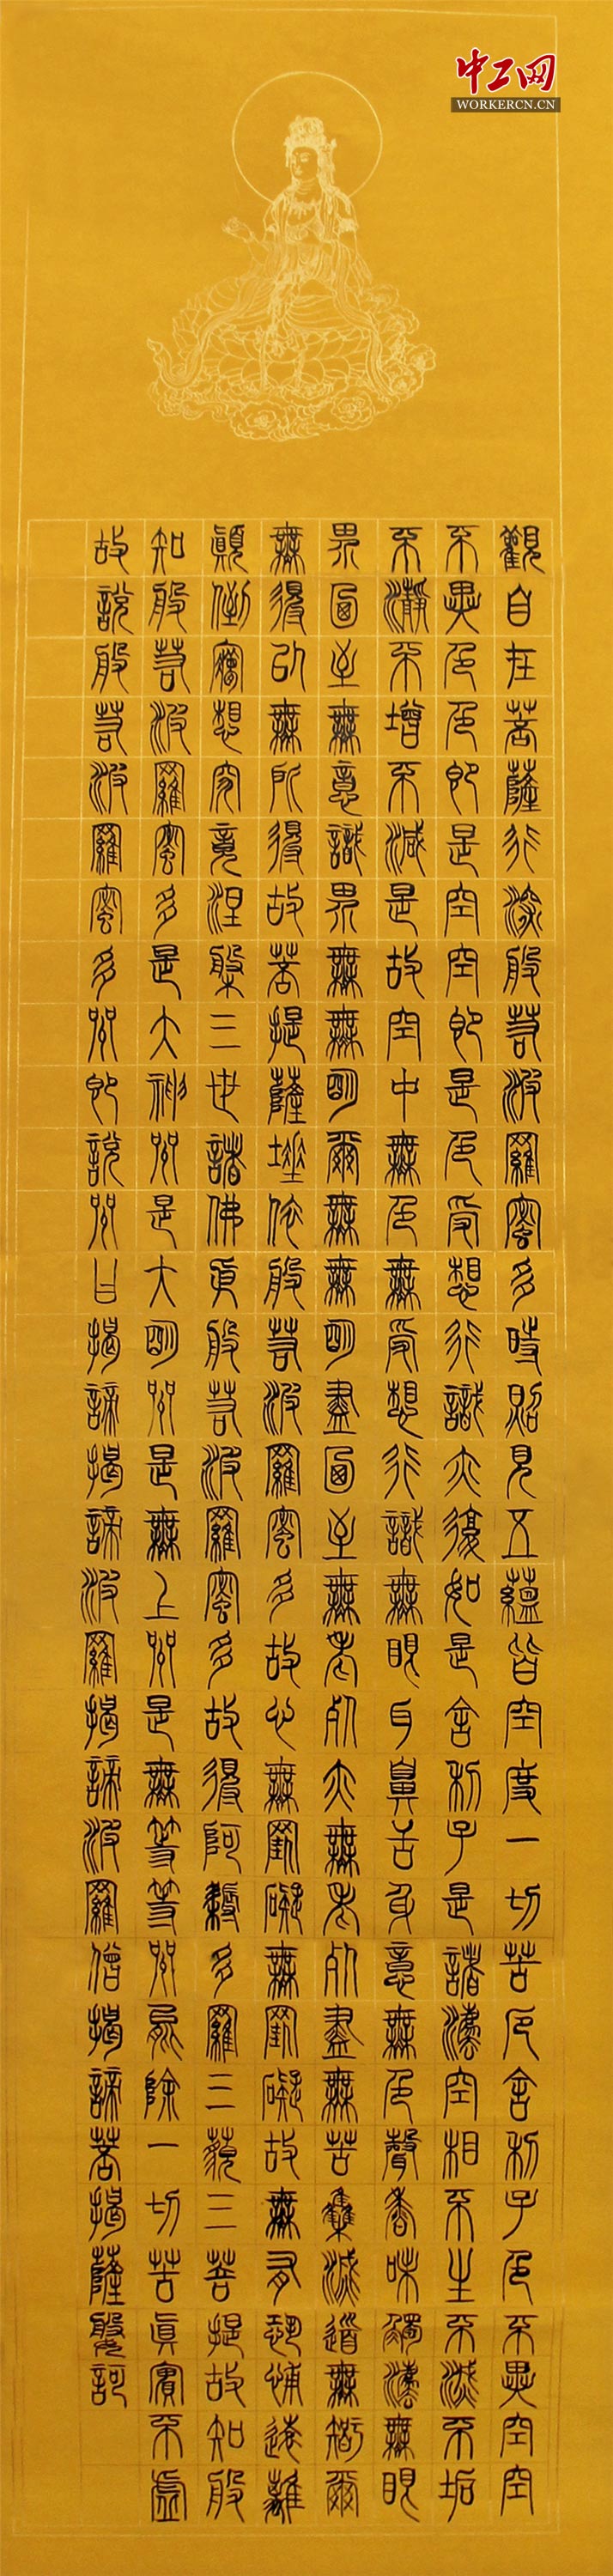 中工网
WORKERCN.CN
觀自在菩薩行深般若波羅蜜多時照見五蘊皆空度一切苦厄舍利子色不異空空
不異色色即是空空即是色受想行識亦復如是舍利子是諸法空相不生不滅不垢
不淨不增不減是故空中無色無受想行識無眼耳鼻舌身意無色聲香味觸法無眼
界乃至無意識界無無明爾無無明盡乃至無老死亦無老死盡無苦集滅道無智爾
無得以無所得故菩提薩埵依般若波羅蜜多故心無罣礙無罣礙故無有恐怖遠離
顛倒夢想究竟涅槃三世諸佛依般若波羅蜜多故得阿耨多羅三藐三菩提故知般
知般若波羅蜜多是大神咒是大明咒是無上咒是無等等咒能除一切苦真實不虛
故說般若波羅蜜多咒即說咒曰揭諦揭諦波羅揭諦波羅僧揭諦菩提薩婆訶